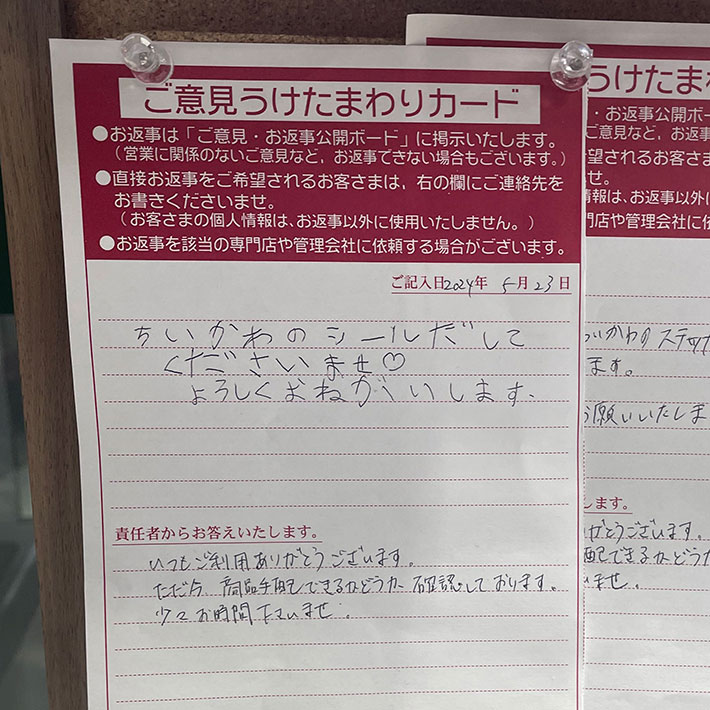 ご意見うけたまわりカード
●お返事は「ご意見・お返事公開ボード」に掲示いたします。
（営業に関係のないご意見など，お返事できない場合もございます。）
●直接お返事をご希望されるお客さまは，右の欄にご連絡先を
お書きくださいませ。
（お客さまの個人情報は、お返事以外に使用いたしません。）
●お返事を該当の専門店や管理会社に依頼する場合がございます。
ご記入日2024年 5月23日
ちいかわのシールだして
くださいませ♡
よろしくおねがいします.
責任者からお答えいたします。
いつもご利用ありがとうございます。
ただ今、商品手配できるかどうか確認しております。
少々お時間下さいませ.
うけたま
・お返事公開ボー
ご意見など，お返事
望されるお客さま
せ。
情報は、お返事以外に
専門店や管理会社に依
いかわのステッカ
ます。
お願いいたしま
します。
がとうございます.
配できるかどうか
いませ.